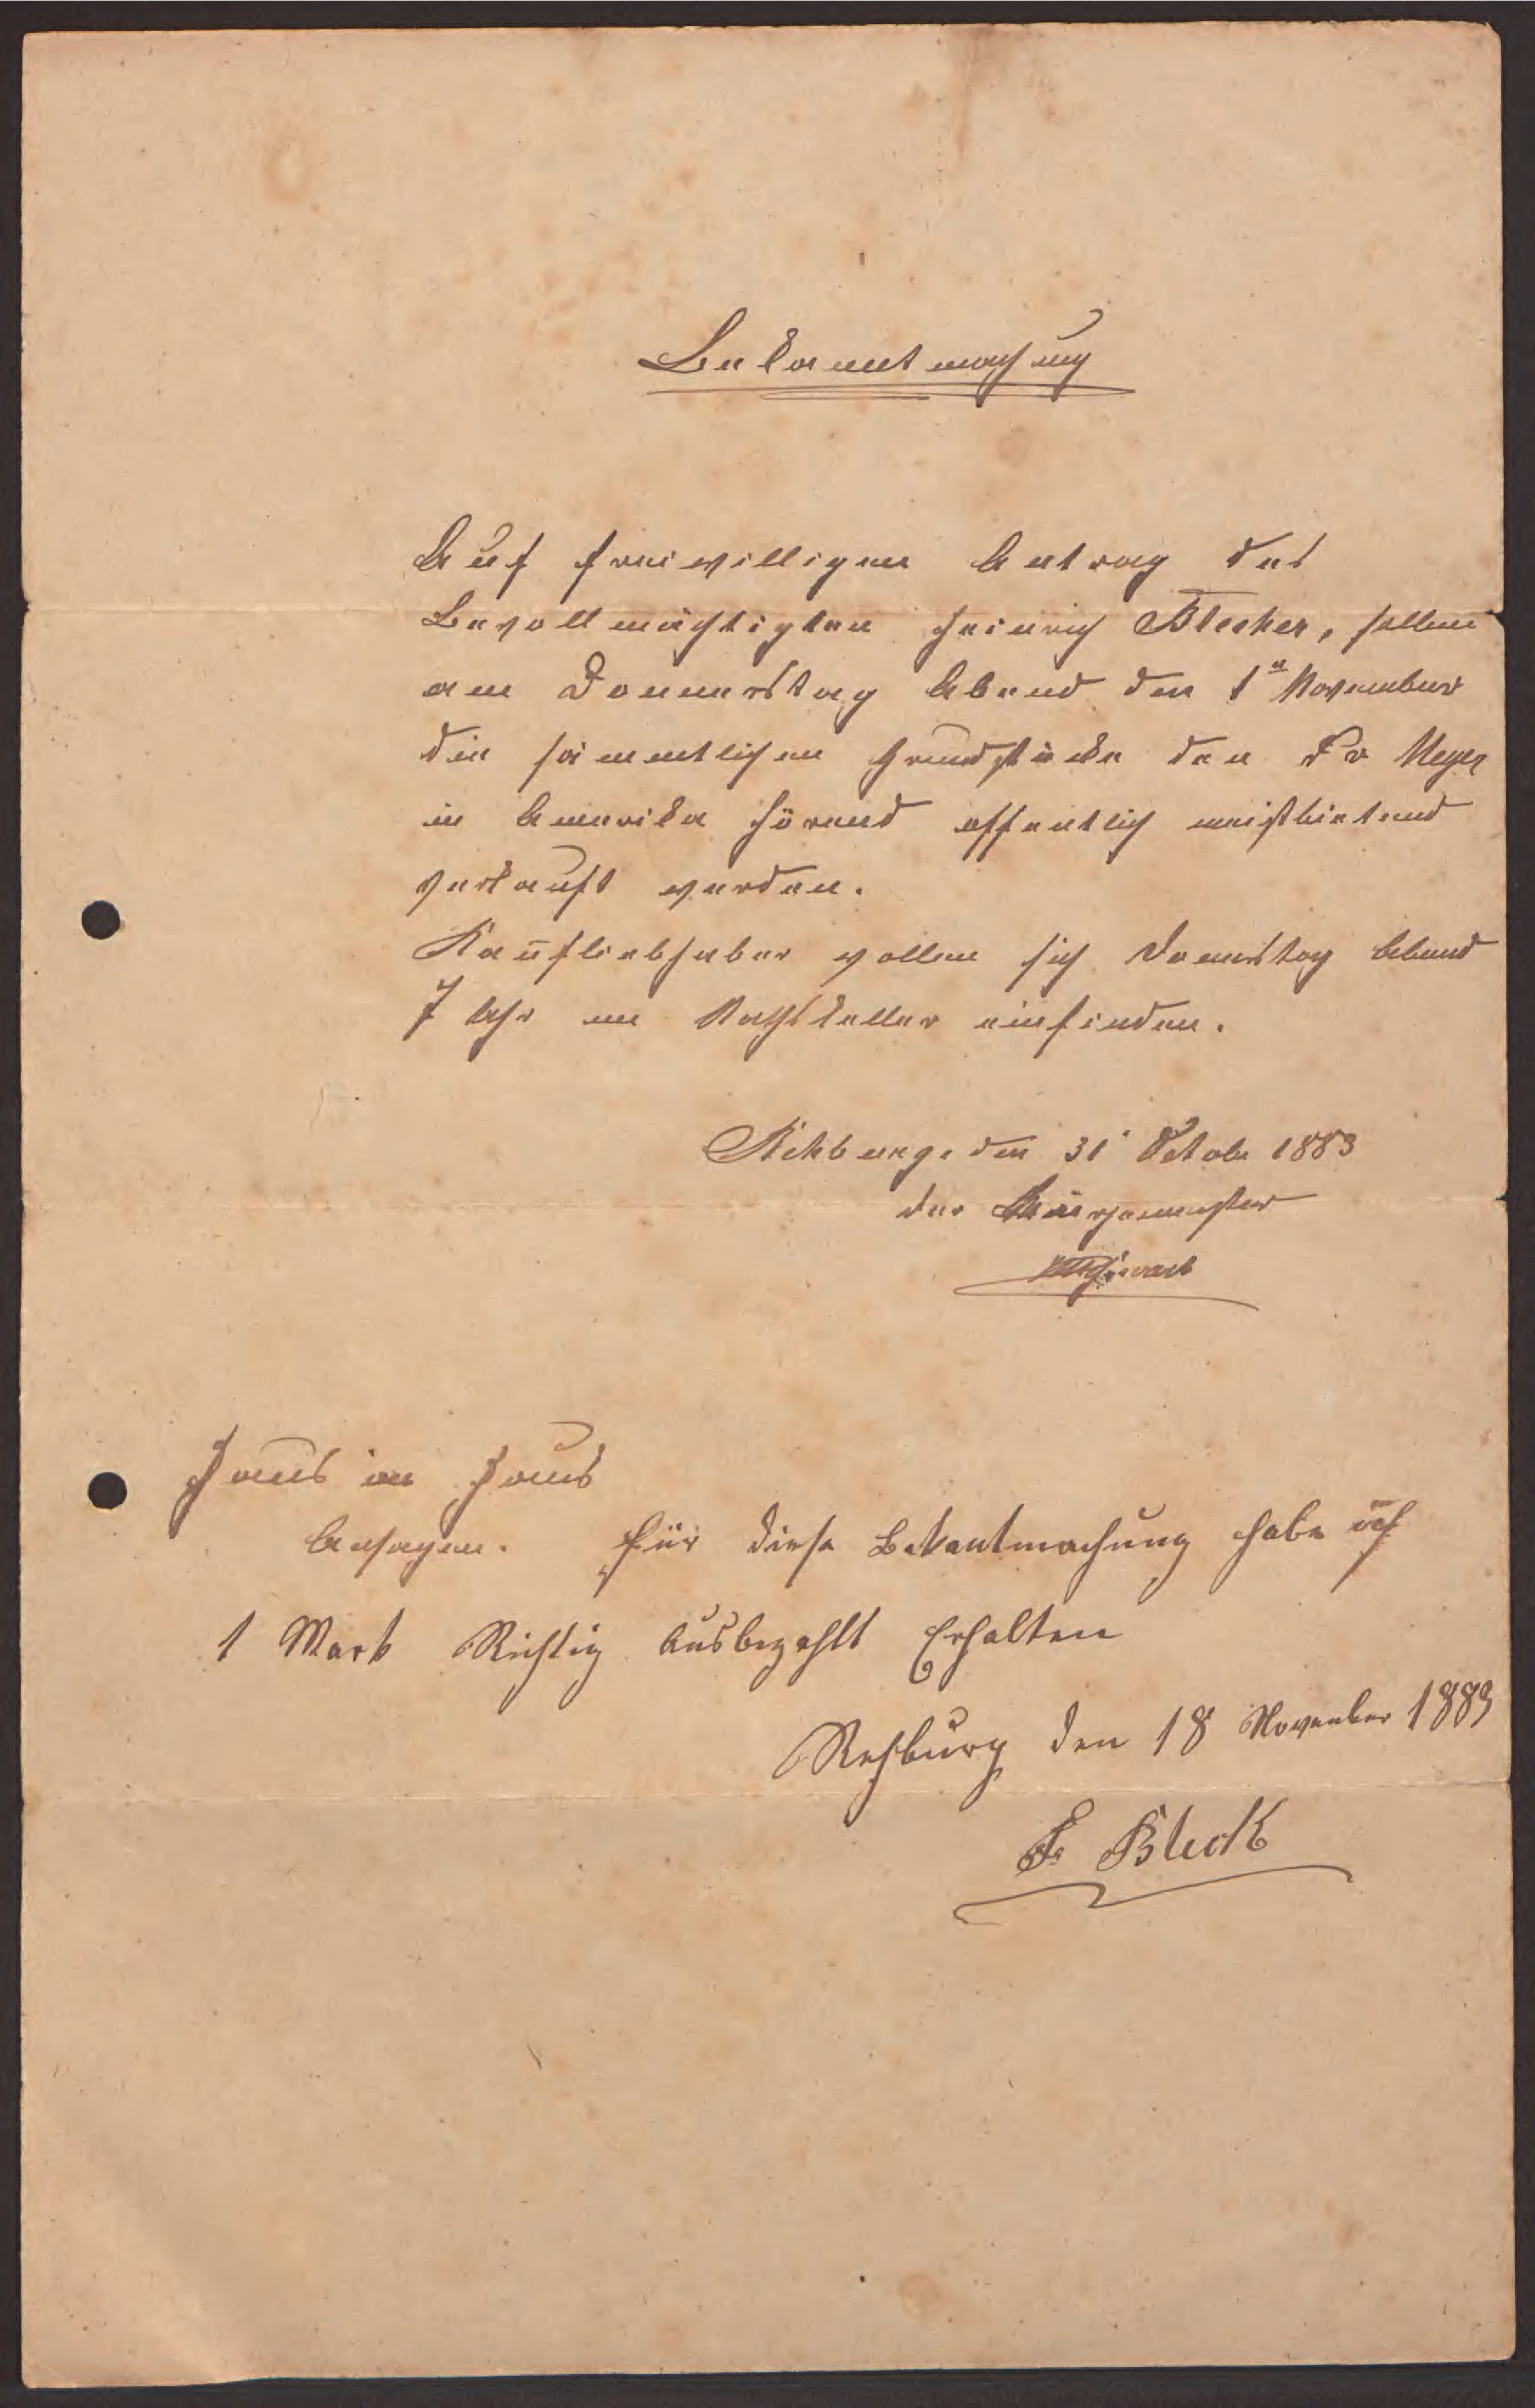 Bekanntmachung
Auf freiwilligen Antrag des
Bevollmächtigten Heinrich Blecker, sollen
am Donnerstag Abend den 1n November
die sämmtlichen Grundstücke den Fr Meyer
in Amerika hörend öffentlich meistbietend
verkauft werden.
Kaufliebhaber wollen sich Donnerstag Abend
7 Uhr im Rathskeller einfinden.
Rehburg. den 31. October 1883
der Bürgermeister
Haus in Haus
Ansagen. für diese Bekantmachung habe ich
1 Mark Richtig Ausbezahlt Erhalten
Rehburg den 18 November 1883
Fr Bleck